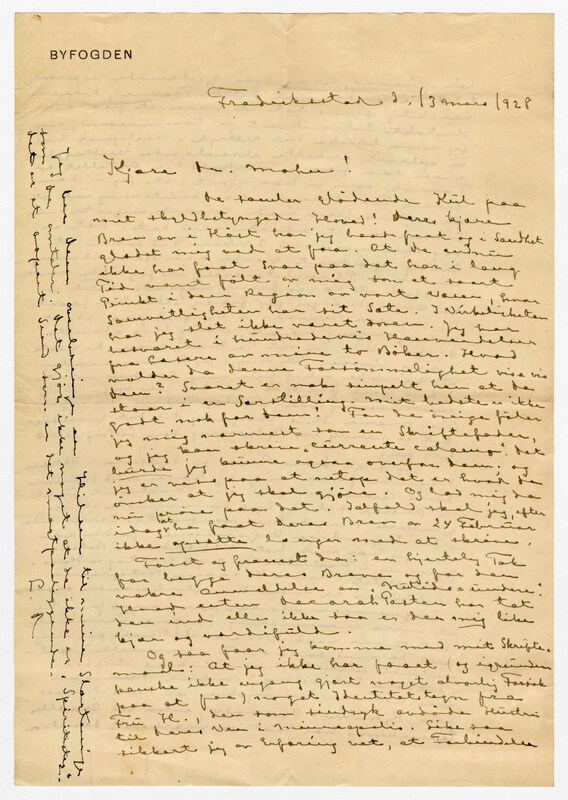 BYFOGDEN
Fredrikstad d. 13 mars 1928
Kjære Dr. Mohn!
De samler glödende Kul paa
mit skyldbetyngede Hoved! Deres kjære
Brev av i Höst har jeg baade faat og i Sandhet
glædet mig ved at faa. At De endnu
ikke har faat Svar paa det har i lang
Tid været fölt av mig som et saart
Punkt i den Region av vort Væsen, hvor
Samvittigheten har sit Sæte. I Virkeligheten
har jeg slet ikke været doven. Jeg har
besvaret i hundredevis Henvendelser
fra Læsere av mine to Böker. Hvad
volder da denne Forsömmelighet vis a vis
Dem? Svaret er nok simpelt hen at De
staar i en Særstilling. Mit bedste er ikke
godt nok for Dem! For de övrige föler
jeg mig nærmest som en Skriftefader,
og jeg kan skrive "currente calamo". Det
burde jeg kunne ogsaa overfor Dem; og
jeg er viss paa at netop det er hvad De
önsker at jeg skal gjöre. Og lad mig da
nu pröve paa det. Ialfald skal jeg, efter
idag at ha faat Deres Brev av 24 Februar
ikke opsætte længer med at skrive.
Först og fremst da: en hjertelig Tak
for begge Deres Breve og for den
vakre Anmeldelse av "Nutids-undere".
Hvad enten Decorah Posten har tat
den ind eller ikke saa er den mig like
kjær og værdifuld.
Og saa faar jeg komme med mit Skrifte-
maal: At jeg ikke har faaet (og i grunden
kanske ikke engang gjort noget alvorlig Forsök
paa at faa) noget Identitetstegn fra
Fru H., den som sindsyk avdöde Hustru
til Deres Ven i Minneapolis. Like saa
sikkert jeg av Erfaring vet, at Forbindelse
Jeg ber Dem
som De omtaler. Det gjör ikke noget at De ikke er "Spiritist".
det er et aapent Sind som er det